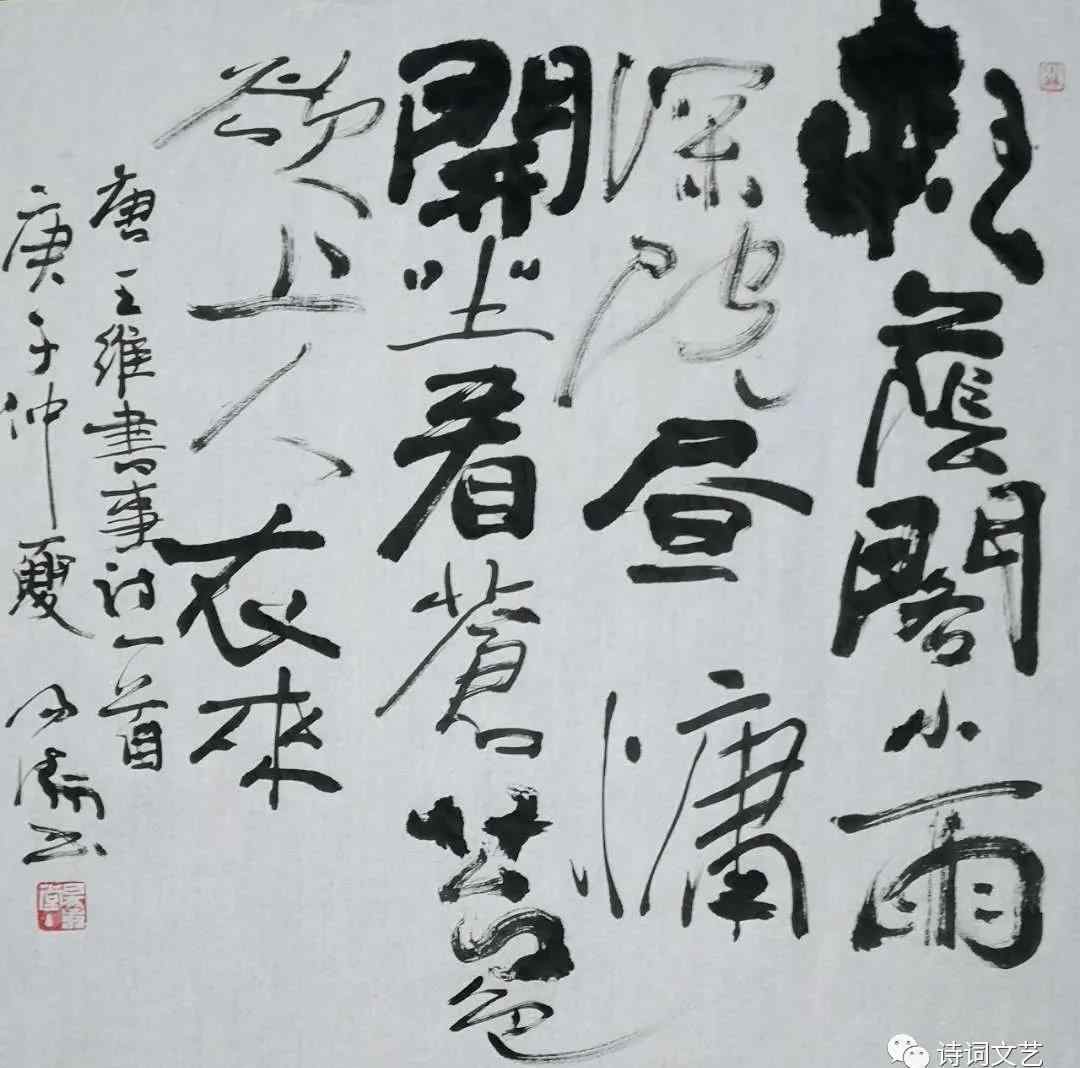 輕蔭閣小雨
深院昼慵
開坐看蒼苔色
欲上人衣來
唐王維書事詩一首
庚子仲夏书
诗词文艺